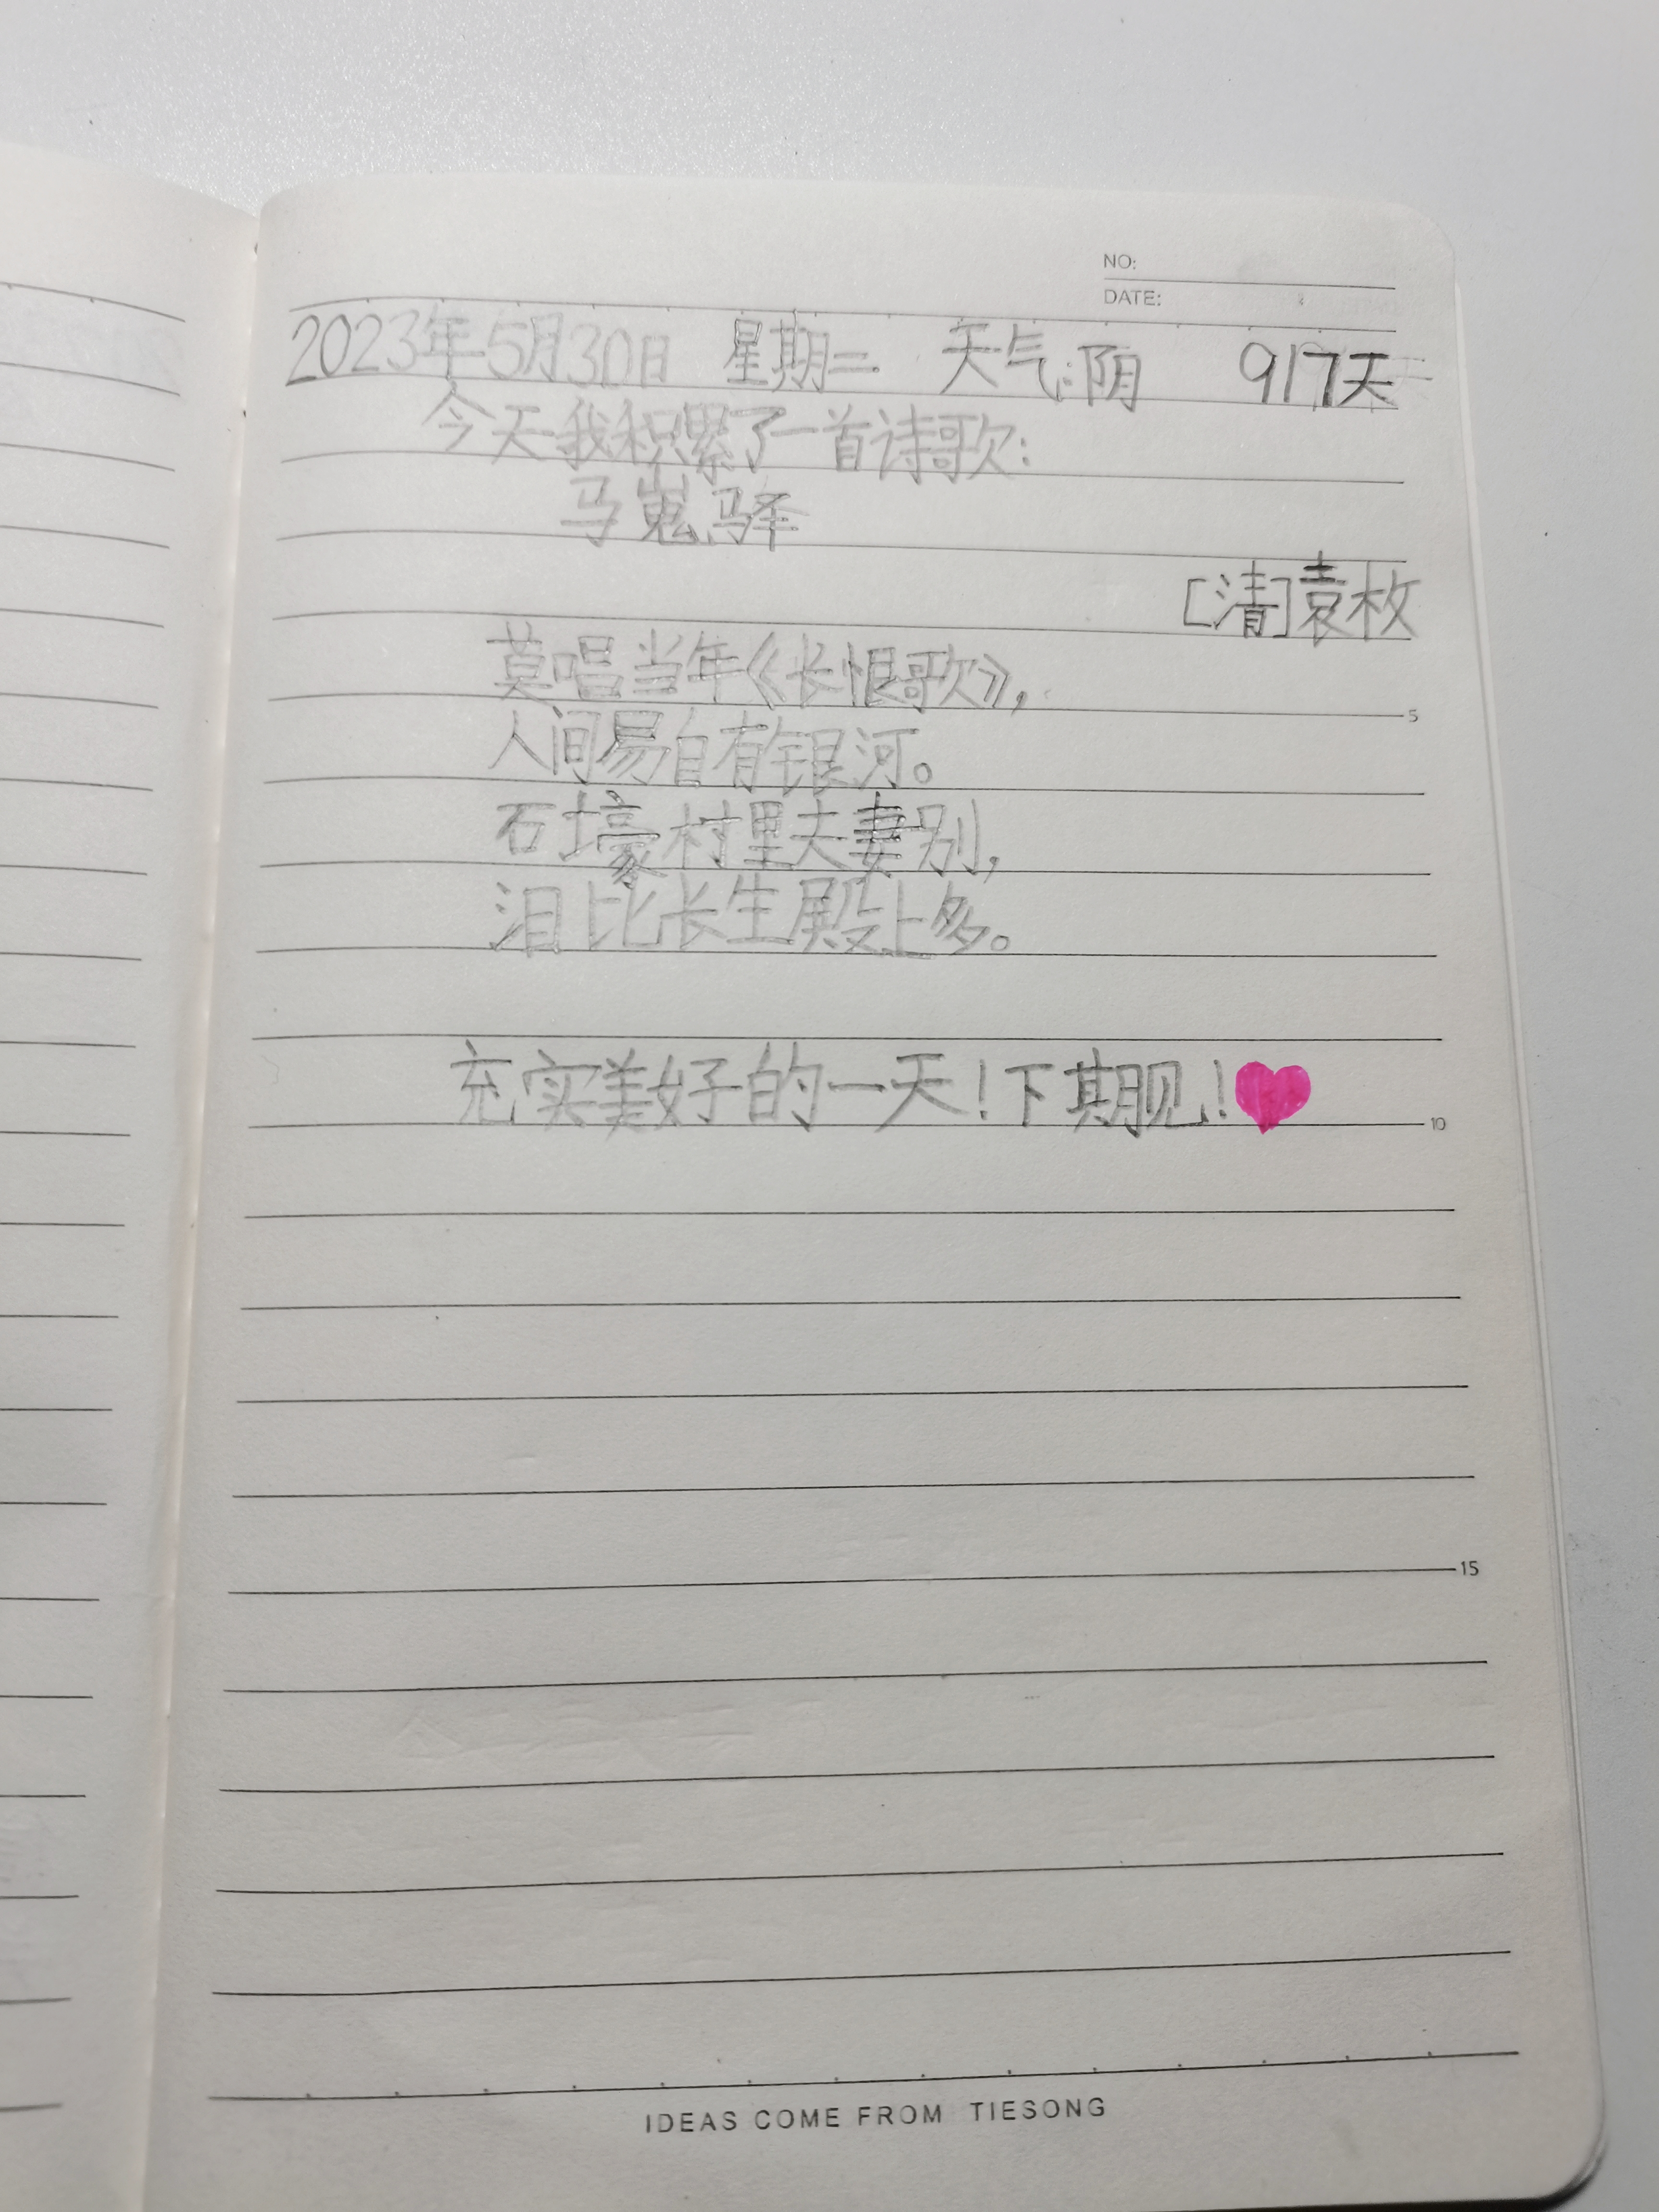 NO:
DATE:
2023年5月30日 星期二 天气:阴 917天
今天我积累了一首诗歌:
马嵬驿
[清]袁枚
莫唱当年《长恨歌》,
人间易自有银河。
5
石壕村里夫妻别,
泪比长生殿上多。
充实美好的一天!下期见!
10
15
IDEAS COME FROM TIESONG